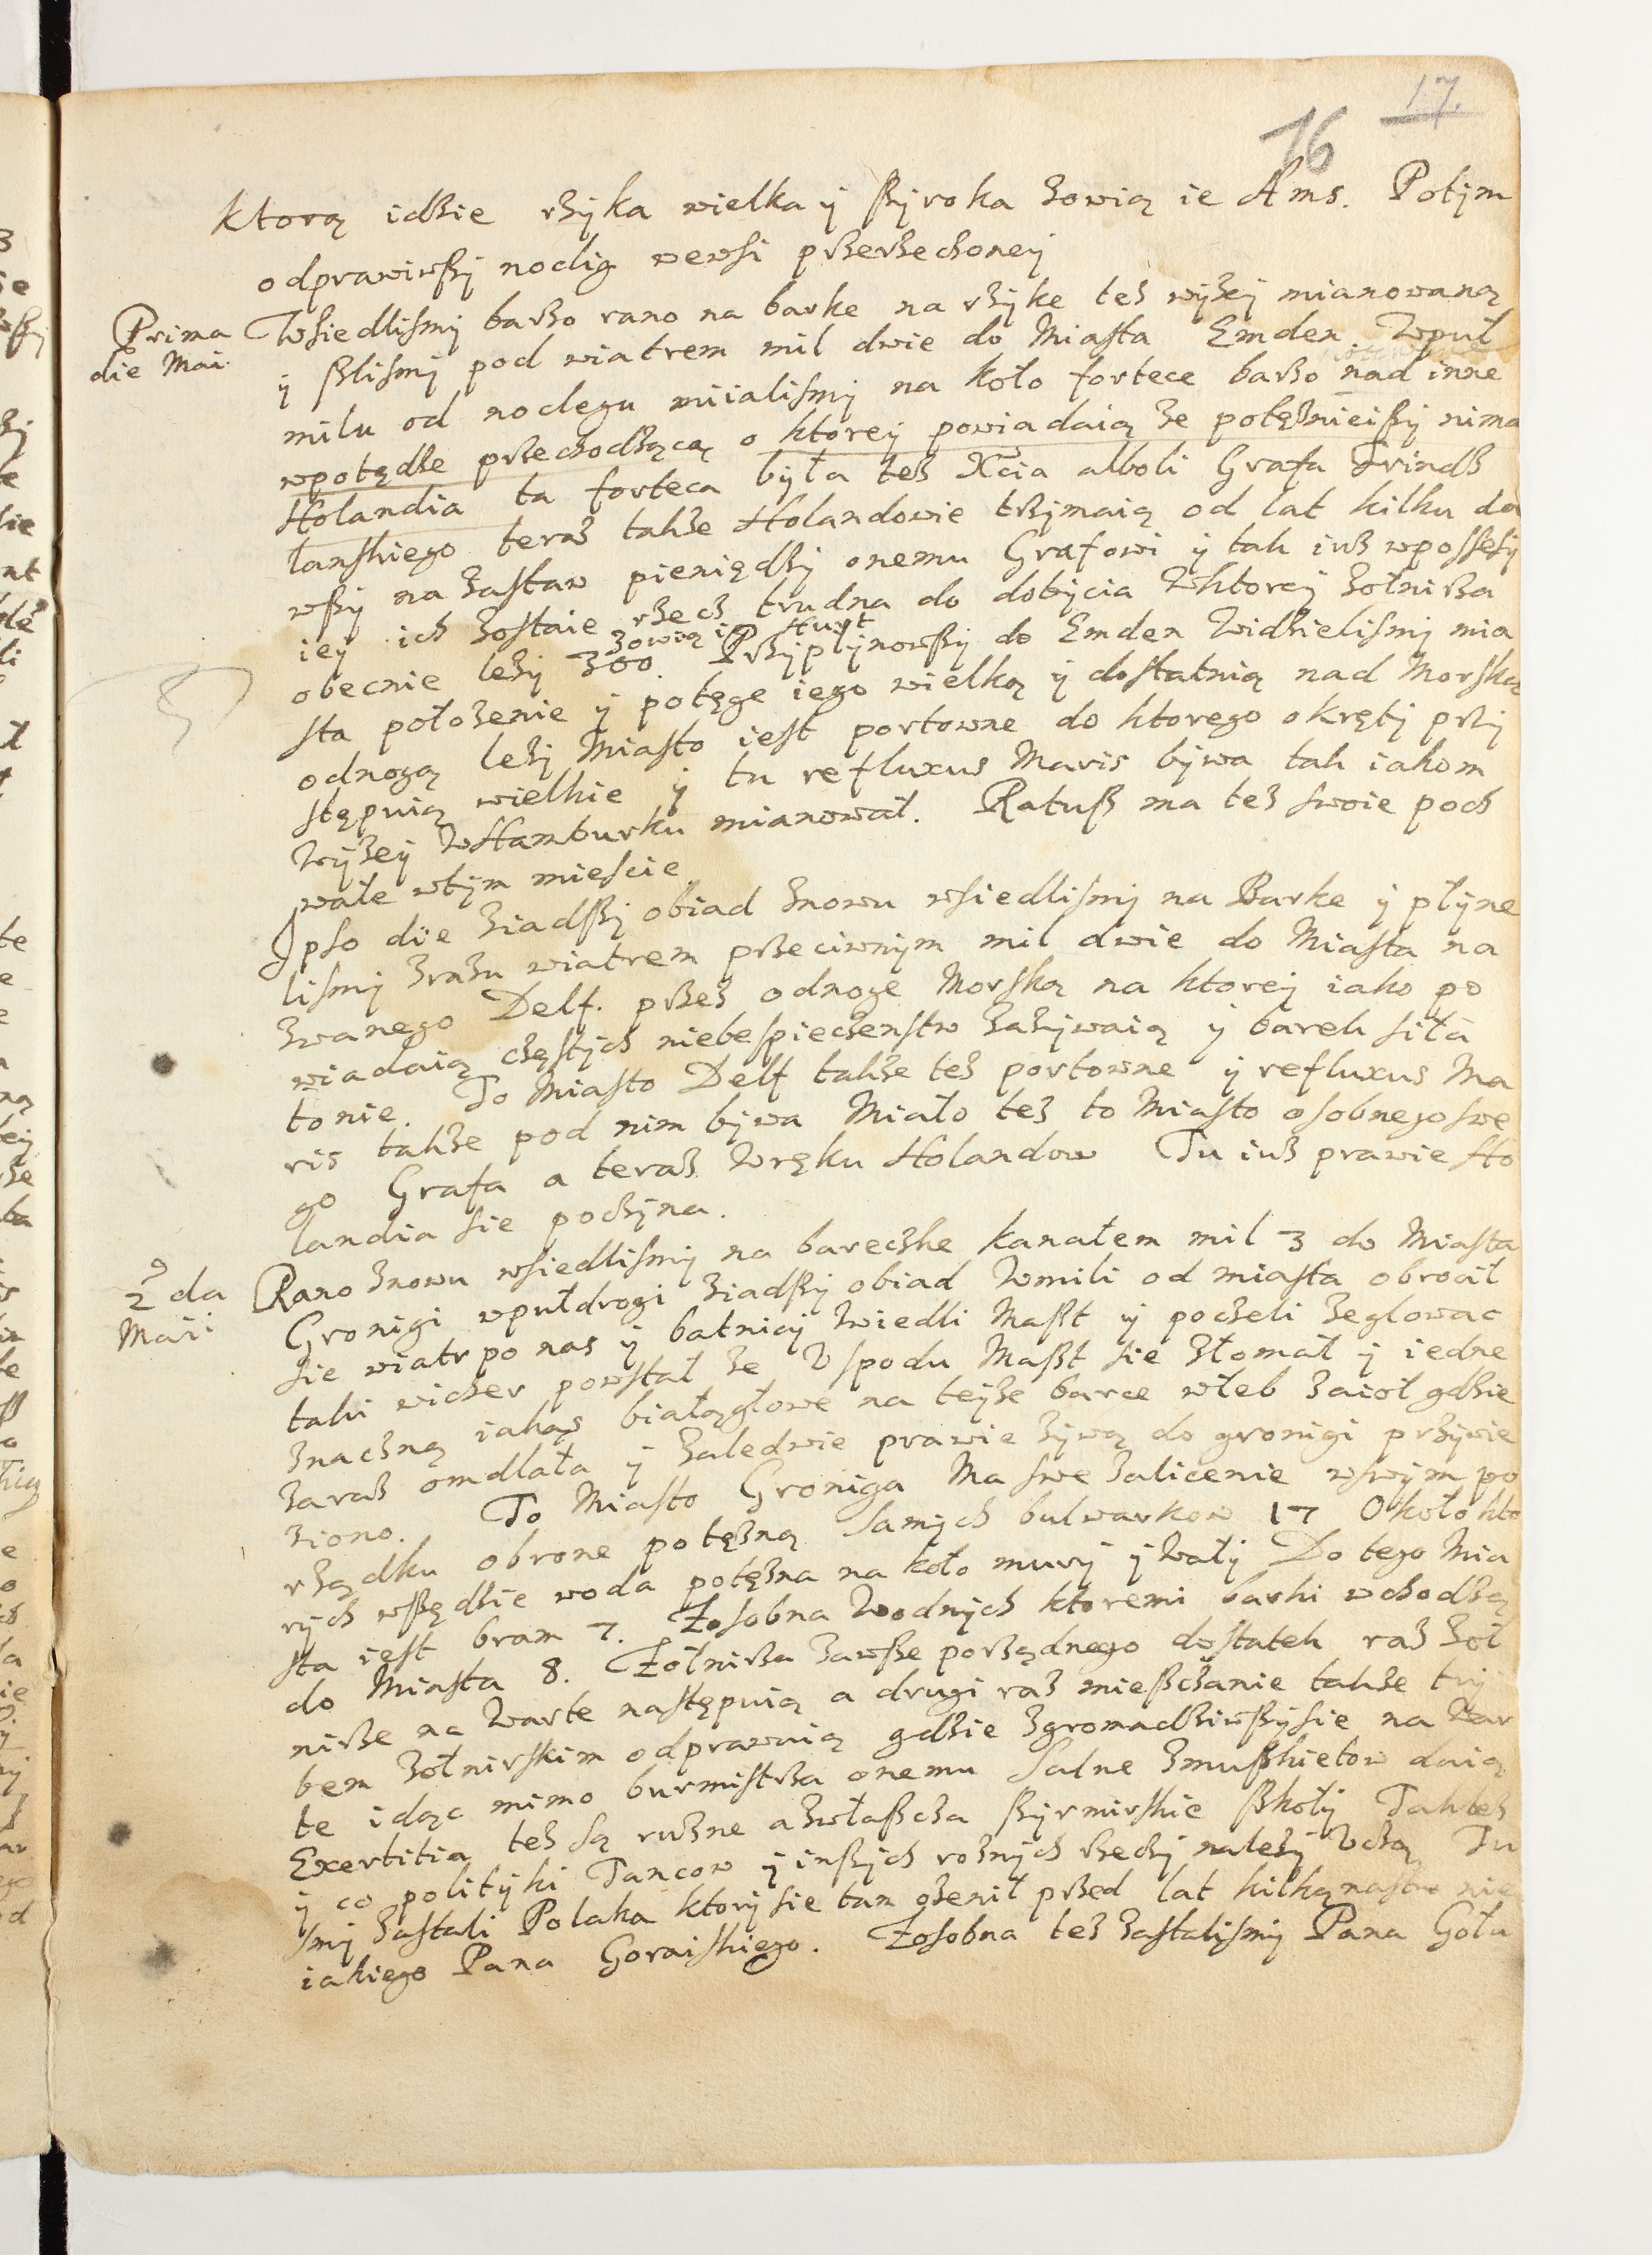 17.
16
ktorą idzie rzyka wielka y szyroka zowią ie Ams. Potym
odprawiwszy noclig wewsi przerzeczoney
Prima die Mai. Wsiedlismy barzo rano na barke na rzyke tez wyzey mianowaną
y szlismy pod wiatrem mil dwie do Miasta Emden. Wpuł
milu od noclegu miialismy na koło fortece barzo nad inne
wpotędze przechodzącą o ktorey powiadaią ze potęznieiszy nima
Holandia ta forteca była tez Xcia alboli Grafa Frindz
lanskiego teraz takze Holandowie trzymaią od lat kilku da
wszy na zastaw pieniędzy onemu Grafowi y tak iuz wpossesy
iey ich zostaie rzecz trudna do dobycia Wktorey zołnirza
zowią ią Hurt
obecnie lezy 300. Przypłynowszy do Emden Widzielismy mia
sta położenie y potęge iego wielką y dostatnią nad Morską
odnogą lezy Miasto iest portowne do ktorego okręty przy
stępuią wielkie y tu refluxus Maris bywa tak iakom
Wyzey WHamburku mianował. Ratusz ma tez swoie poch
wałe wtym miescie
Ipso die ziadszy obiad znowu wsiedlismy na Barke y płyne
lismy zrazu wiatrem przeciwnym mil dwie do Miasta na
zwanego Delf. przez odnoge Morską na ktorey iako po
wiadaią częstych niebespieczenstw zazywaią y barek siła
tonie. To Miasto Delf takze tez portowne y refluxus Ma
ris takze pod nim bywa Miało tez to Miasto osobnego swe
go Grafa a teraz Wręku Holandow Tu iuz prawie Ho
landia sie poczyna.
2da Maii Rano znowu wsiedlismy na bareczke kanałem mil 3 do Miasta
Gronigi wpułdrogi ziadszy obiad Wmili od miasta obrocił
sie wiatr po nas y batnicy zwiedli Maszt y poczeli zeglowac
taki wicher powstał ze Vspodu Maszt sie złomał y iedne
znaczną iakąs białągłowe na teyze barce włeb zaioł gdzie
zaraz omdlała y zaledwie prawie zywą do gronigi przywie
ziono. To Miasto Groniga Ma swe zalicenie wswym po
rządku obrone potęzną Samych bulwarkow 17 Około kto
rych wszędzie woda potęzna na koło mury y Wały Do tego Mia
sta iest bram 7. Zosobna Wodnych ktoremi barki wchodzą
do Miasta 8. Zołnirza zawsze porządnego dostatek raz zoł
nirze na Warte następuią a drugi raz mieszczanie takze try
bem zołnirskim odprawuią gdzie zgromadziwszy sie na War
te idąc mimo burmistrza onemu Salne zmuszkietow daią
Exertitia tez są ruzne a zwłaszcza szyrmirskie szkoły Taktez
y co polityki Tancow y inszych roznych rzeczy nalezy Vczą Tu
smy zastali Polaka ktory sie tam ozenił przed lat kilkąnastu nie
iakiego Pana Goraiskiego. Zosobna tez zastalismy Pana Gołu